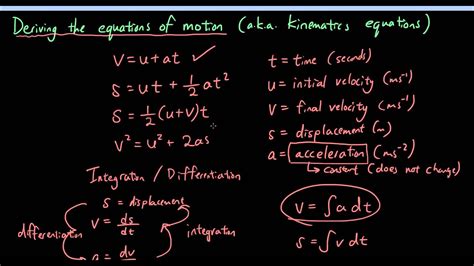 Deriving the equations of motion (a.k.a. kinematics equations)
v = u + at ✓
s = ut + ½ at²
s = ½ (u+v) t
v² = u² + 2as
t = time (seconds)
u = initial velocity (ms⁻¹)
v = final velocity (ms⁻¹)
s = displacement (m)
a = acceleration (ms⁻²)
↳ constant (does not change)
Integration / Differentiation
s = displacement
v = ds/dt
a = dv
differentiation
integration
v = ∫ a dt
s = ∫ v dt